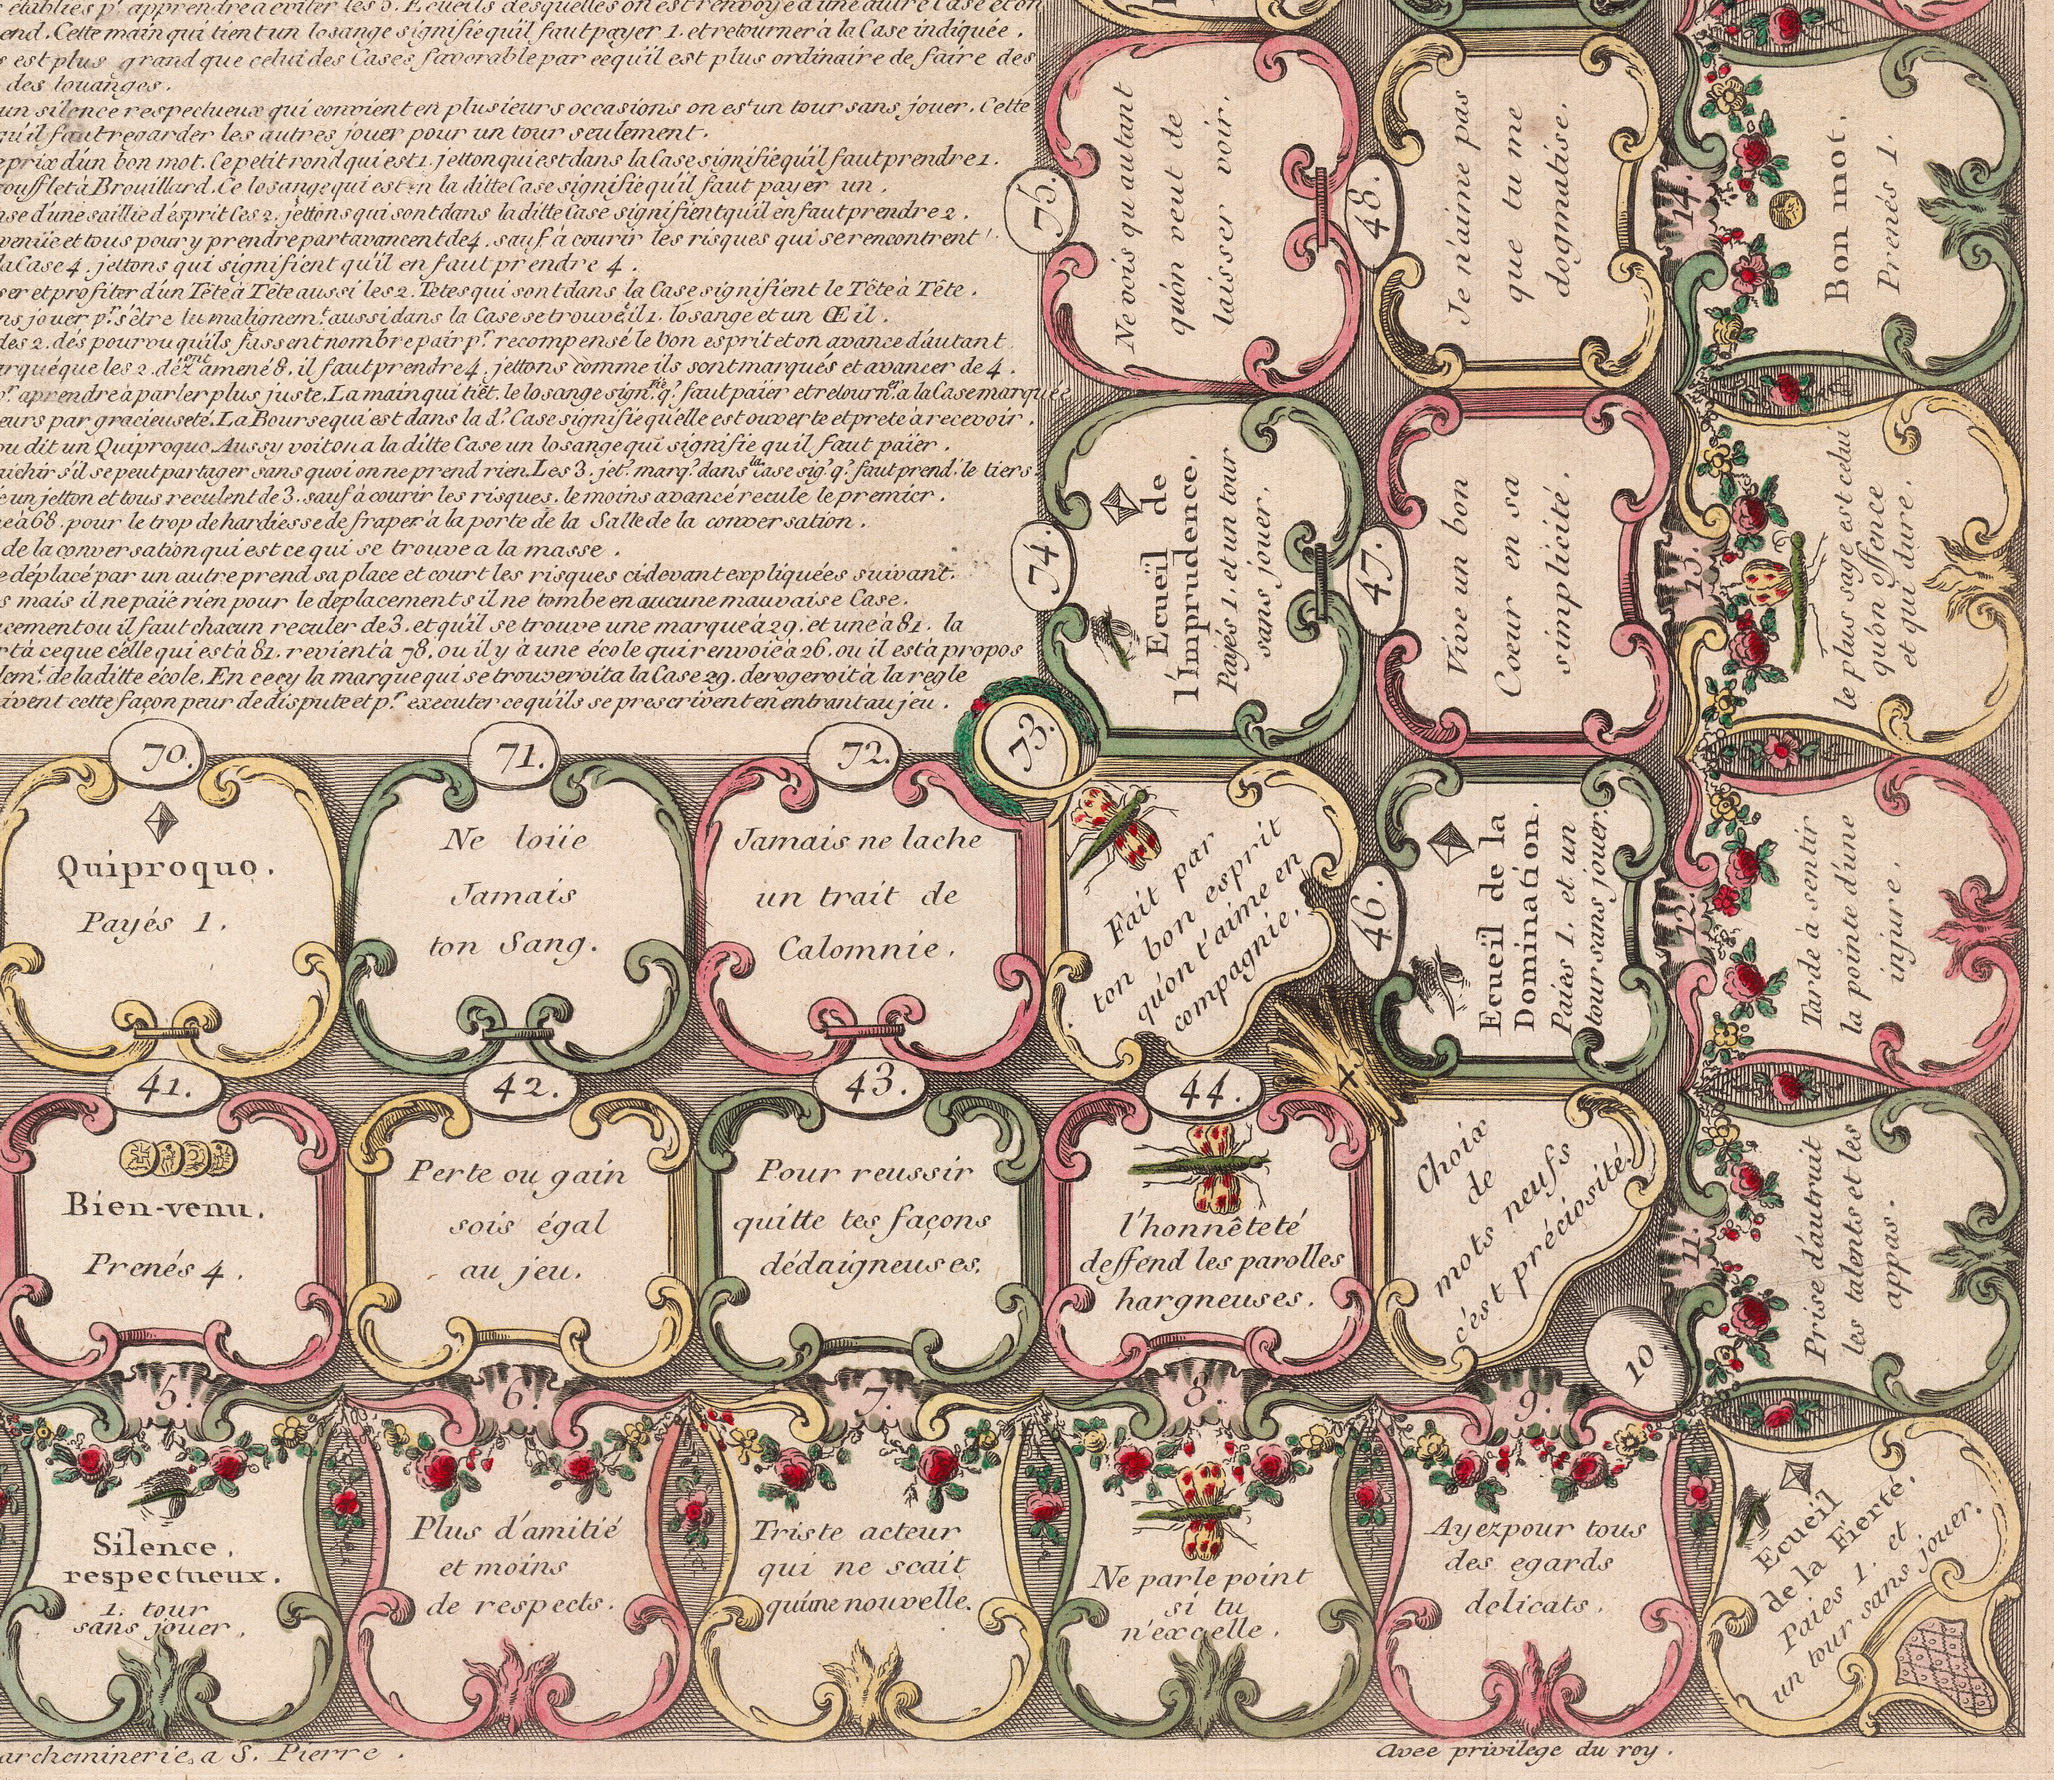 établies pr. apprendre a eviter les 5. Ecueils desquelles on est renvoyé a une autre Case et on
end. Cette main qui tient un losange signifie qu'il faut payer 1. et retourner à la Case indiquée.
est plus grand que celui des Cases favorable par ce qu'il est plus ordinaire de faire des
des louanges.
un silence respectueux qui convient en plusieurs occasions on est un tour sans jouer. Cette
qu'il faut regarder les autres jouer pour un tour seulement.
prix d'un bon mot. Ce petit rond qui est 1. jetton qui est dans la Case signifie qu'il faut prendre 1.
soufflet à Brouillard. Ce losange qui est en la ditte Case signifie qu'il faut payer un.
nse d'une saillie d'esprit Ces 2. jettons qui sont dans la ditte Case signifient qu'il en faut prendre 2.
venüe et tous pour y prendre part avancent de 4. sauf à courir les risques qui se rencontrent
la Case 4. jettons qui signifient qu'il en faut prendre 4.
ser et profiter d'un Tête à Tête aussi les 2. Tetes qui sont dans la Case signifient le Tête à Tête.
ns jouer pr. s'être lu malignemt. aussi dans la Case se trouve il 1. losange et un Œil.
des 2. dés pourvu qu'ils fassent nombre pair pr. recompense le bon esprit et on avance d'autant
arqué que les 2. déz ont amené 8. il faut prendre 4. jettons comme ils sont marqués et avancer de 4.
pr. aprendre à parler plus juste. La main qui tiët. le losange signifie q'. faut païer et retourner a la Case marquée
eurs par gracieuseté. La Bourse qui est dans la de. Case signifie qu'elle est ouverte et prete à recevoir.
ou dit un Quiproquo. Aussy voit on a la ditte Case un losange qui signifie qu'il faut païer.
aichir s'il se peut partager sans quoi on ne prend rien. Les 3. jets. marqs. dans la Case sigt. q'. faut prend'. le tiers.
e un jetton et tous reculent de 3. sauf à courir les risques. le moins avancé recule le premier.
e à 68. pour le trop de hardiesse de fraper à la porte de la Salle de la conversation.
de la conversation qui est ce qui se trouve a la masse.
e déplacé par un autre prend sa place et court les risques cidevant expliquées suivant.
s mais il ne paie rien pour le deplacement s'il ne tombe en aucune mauvaise Case.
cement ou il faut chacun reculer de 3. et qu'il se trouve une marque à 29. et une à 81. la
rt à ce que celle qui est à 81. revient à 78. ou il y à une école qui renvoie à 26. ou il est à propos
lemt. de la ditte école. En cecy la marque qui se trouveroit a la Case 29. derogeroit à la regle
ivent cette façon peur de dispute et pr. executer ce qu'ils se prescrivent en entrant au jeu.
75.
Ne vois qu'autant
qu'on veut de
laisser voir.
48.
Je n'aime pas
que tu me
dogmatise.
14.
Bon mot.
Prenés 1.
74.
Ecueïl
de
l'Imprudence.
Payés 1. et un tour
sans jouer.
47.
Vive un bon
Coeur en sa
simplicité.
13.
le plus sage est celui
qu'on offence
et qui dure.
70.
Quiproquo.
Payés 1.
71.
Ne loüe
Jamais
ton Sang.
72.
Jamais ne lache
un trait de
Calomnie.
73.
Fait par
ton bon esprit
qu'on t'aime en
compagnie.
46.
Ecueïl de la
Domination.
Païes 1. et un
tour sans jouer.
12.
Tarde à sentir
la pointe d'une
injure.
41.
Bien-venu.
Prenés 4.
42.
Perte ou gain
sois égal
au jeu.
43.
Pour reussir
quitte tes façons
dédaigneuses.
44.
l'honnêteté
deffend les parolles
hargneuses.
Choix
de
mots neufs
c'est préciosité.
11.
Prise d'autruit
les talents et les
appas.
5.
Silence
respectueux.
1. tour
sans jouer.
6.
Plus d'amitié
et moins
de respects.
7.
Triste acteur
qui ne scait
qu'une nouvelle.
8.
Ne parle point
si tu
n'excelle.
9.
Ayez pour tous
des egards
delicats.
10
Ecueïl
de la Fierté.
Paies 1. et
un tour sans jouer.
archeminerie, a S. Pierre.
Avec privilege du roy.